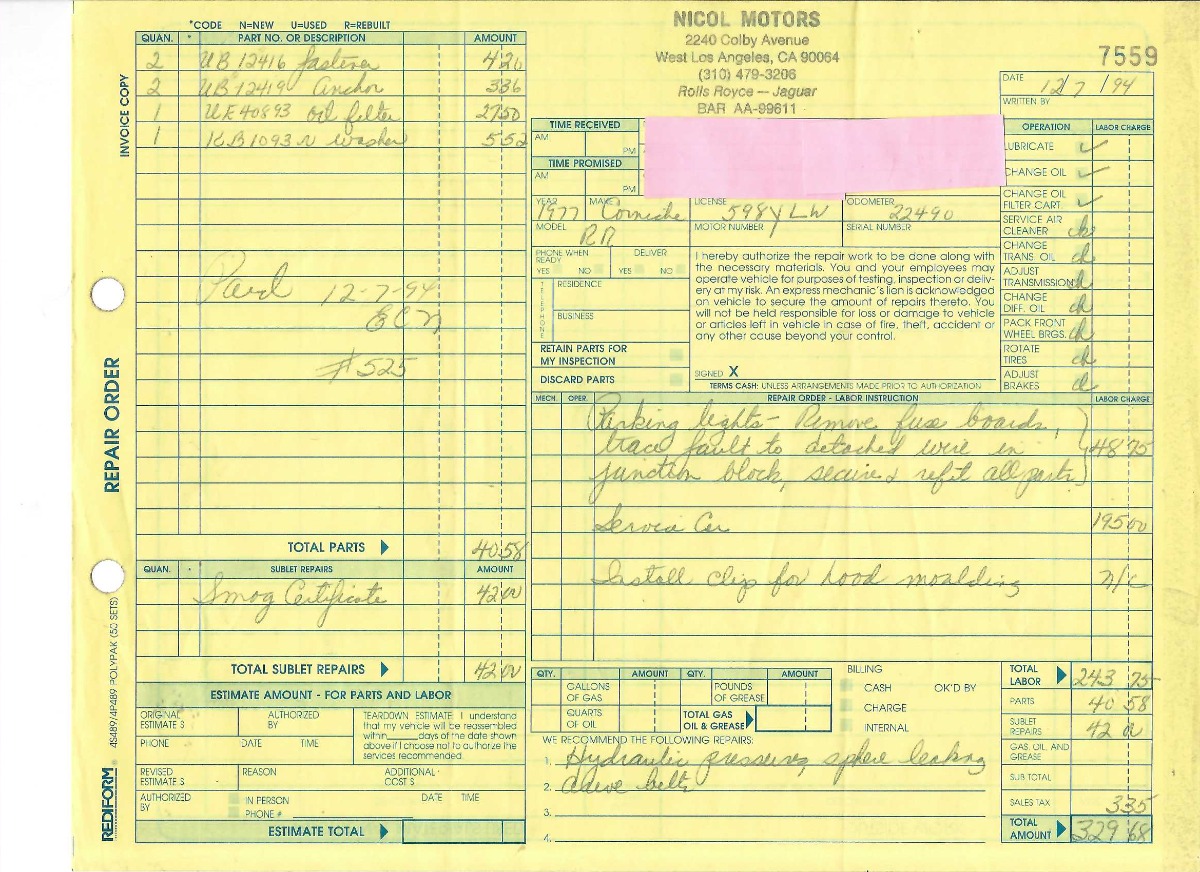 *CODE N=NEW U=USED R=REBUILT
QUAN. * PART NO. OR DESCRIPTION AMOUNT
2 UB 12416 fastener 4 20
2 UB 12419 Anchor 3 36
1 UE 40893 oil filter 27 50
1 KB 1093 N washer 5 52
Paid 12-7-94
#525
TOTAL PARTS 40 58
QUAN. * SUBLET REPAIRS AMOUNT
Smog Certificate 42 00
TOTAL SUBLET REPAIRS 42 00
ESTIMATE AMOUNT - FOR PARTS AND LABOR
ORIGINAL ESTIMATE $
AUTHORIZED BY
PHONE DATE TIME
TEARDOWN ESTIMATE. I understand
that my vehicle will be reassembled
within ____ days of the date shown
above if I choose not to authorize the
services recommended.
REVISED ESTIMATE $
REASON
ADDITIONAL COST $
AUTHORIZED BY
IN PERSON
PHONE #
DATE TIME
ESTIMATE TOTAL
INVOICE COPY
REPAIR ORDER
4S489/4P489 POLYPAK (50 SETS)
REDIFORM
NICOL MOTORS
2240 Colby Avenue
West Los Angeles, CA 90064
(310) 479-3206
Rolls Royce — Jaguar
BAR AA-99611
7559
DATE 12/7/94
WRITTEN BY
TIME RECEIVED
AM
PM
TIME PROMISED
AM
PM
YEAR 1977 MAKE Corniche LICENSE 598 YLW ODOMETER 22490
MODEL RR MOTOR NUMBER SERIAL NUMBER
PHONE WHEN READY
YES NO
DELIVER
YES NO
TELEPHONE
RESIDENCE
BUSINESS
RETAIN PARTS FOR
MY INSPECTION
DISCARD PARTS
I hereby authorize the repair work to be done along with
the necessary materials. You and your employees may
operate vehicle for purposes of testing, inspection or deliv-
ery at my risk. An express mechanic's lien is acknowledged
on vehicle to secure the amount of repairs thereto. You
will not be held responsible for loss or damage to vehicle
or articles left in vehicle in case of fire, theft, accident or
any other cause beyond your control.
SIGNED X
TERMS CASH: UNLESS ARRANGEMENTS MADE PRIOR TO AUTHORIZATION
OPERATION LABOR CHARGE
LUBRICATE ✓
CHANGE OIL ✓
CHANGE OIL FILTER CART. ✓
SERVICE AIR CLEANER ck
CHANGE TRANS. OIL ck
ADJUST TRANSMISSION ck
CHANGE DIFF. OIL ck
PACK FRONT WHEEL BRGS. ck
ROTATE TIRES ck
ADJUST BRAKES ck
MECH. OPER. REPAIR ORDER - LABOR INSTRUCTION LABOR CHARGE
Parking lights - Remove fuse boards,
trace fault to detached wire in 48 75
junction block, secure & refit all parts
Service Car 195 00
Install clip for hood moulding n/c
QTY. AMOUNT QTY. AMOUNT
GALLONS OF GAS
POUNDS OF GREASE
QUARTS OF OIL
TOTAL GAS OIL & GREASE
BILLING
CASH OK'D BY
CHARGE
INTERNAL
WE RECOMMEND THE FOLLOWING REPAIRS:
1. Hydraulic pressures, sphere leaking
2. drive belts
3.
4.
TOTAL LABOR 243 75
PARTS 40 58
SUBLET REPAIRS 42 00
GAS, OIL AND GREASE
SUB TOTAL
SALES TAX 3 35
TOTAL AMOUNT 329 68